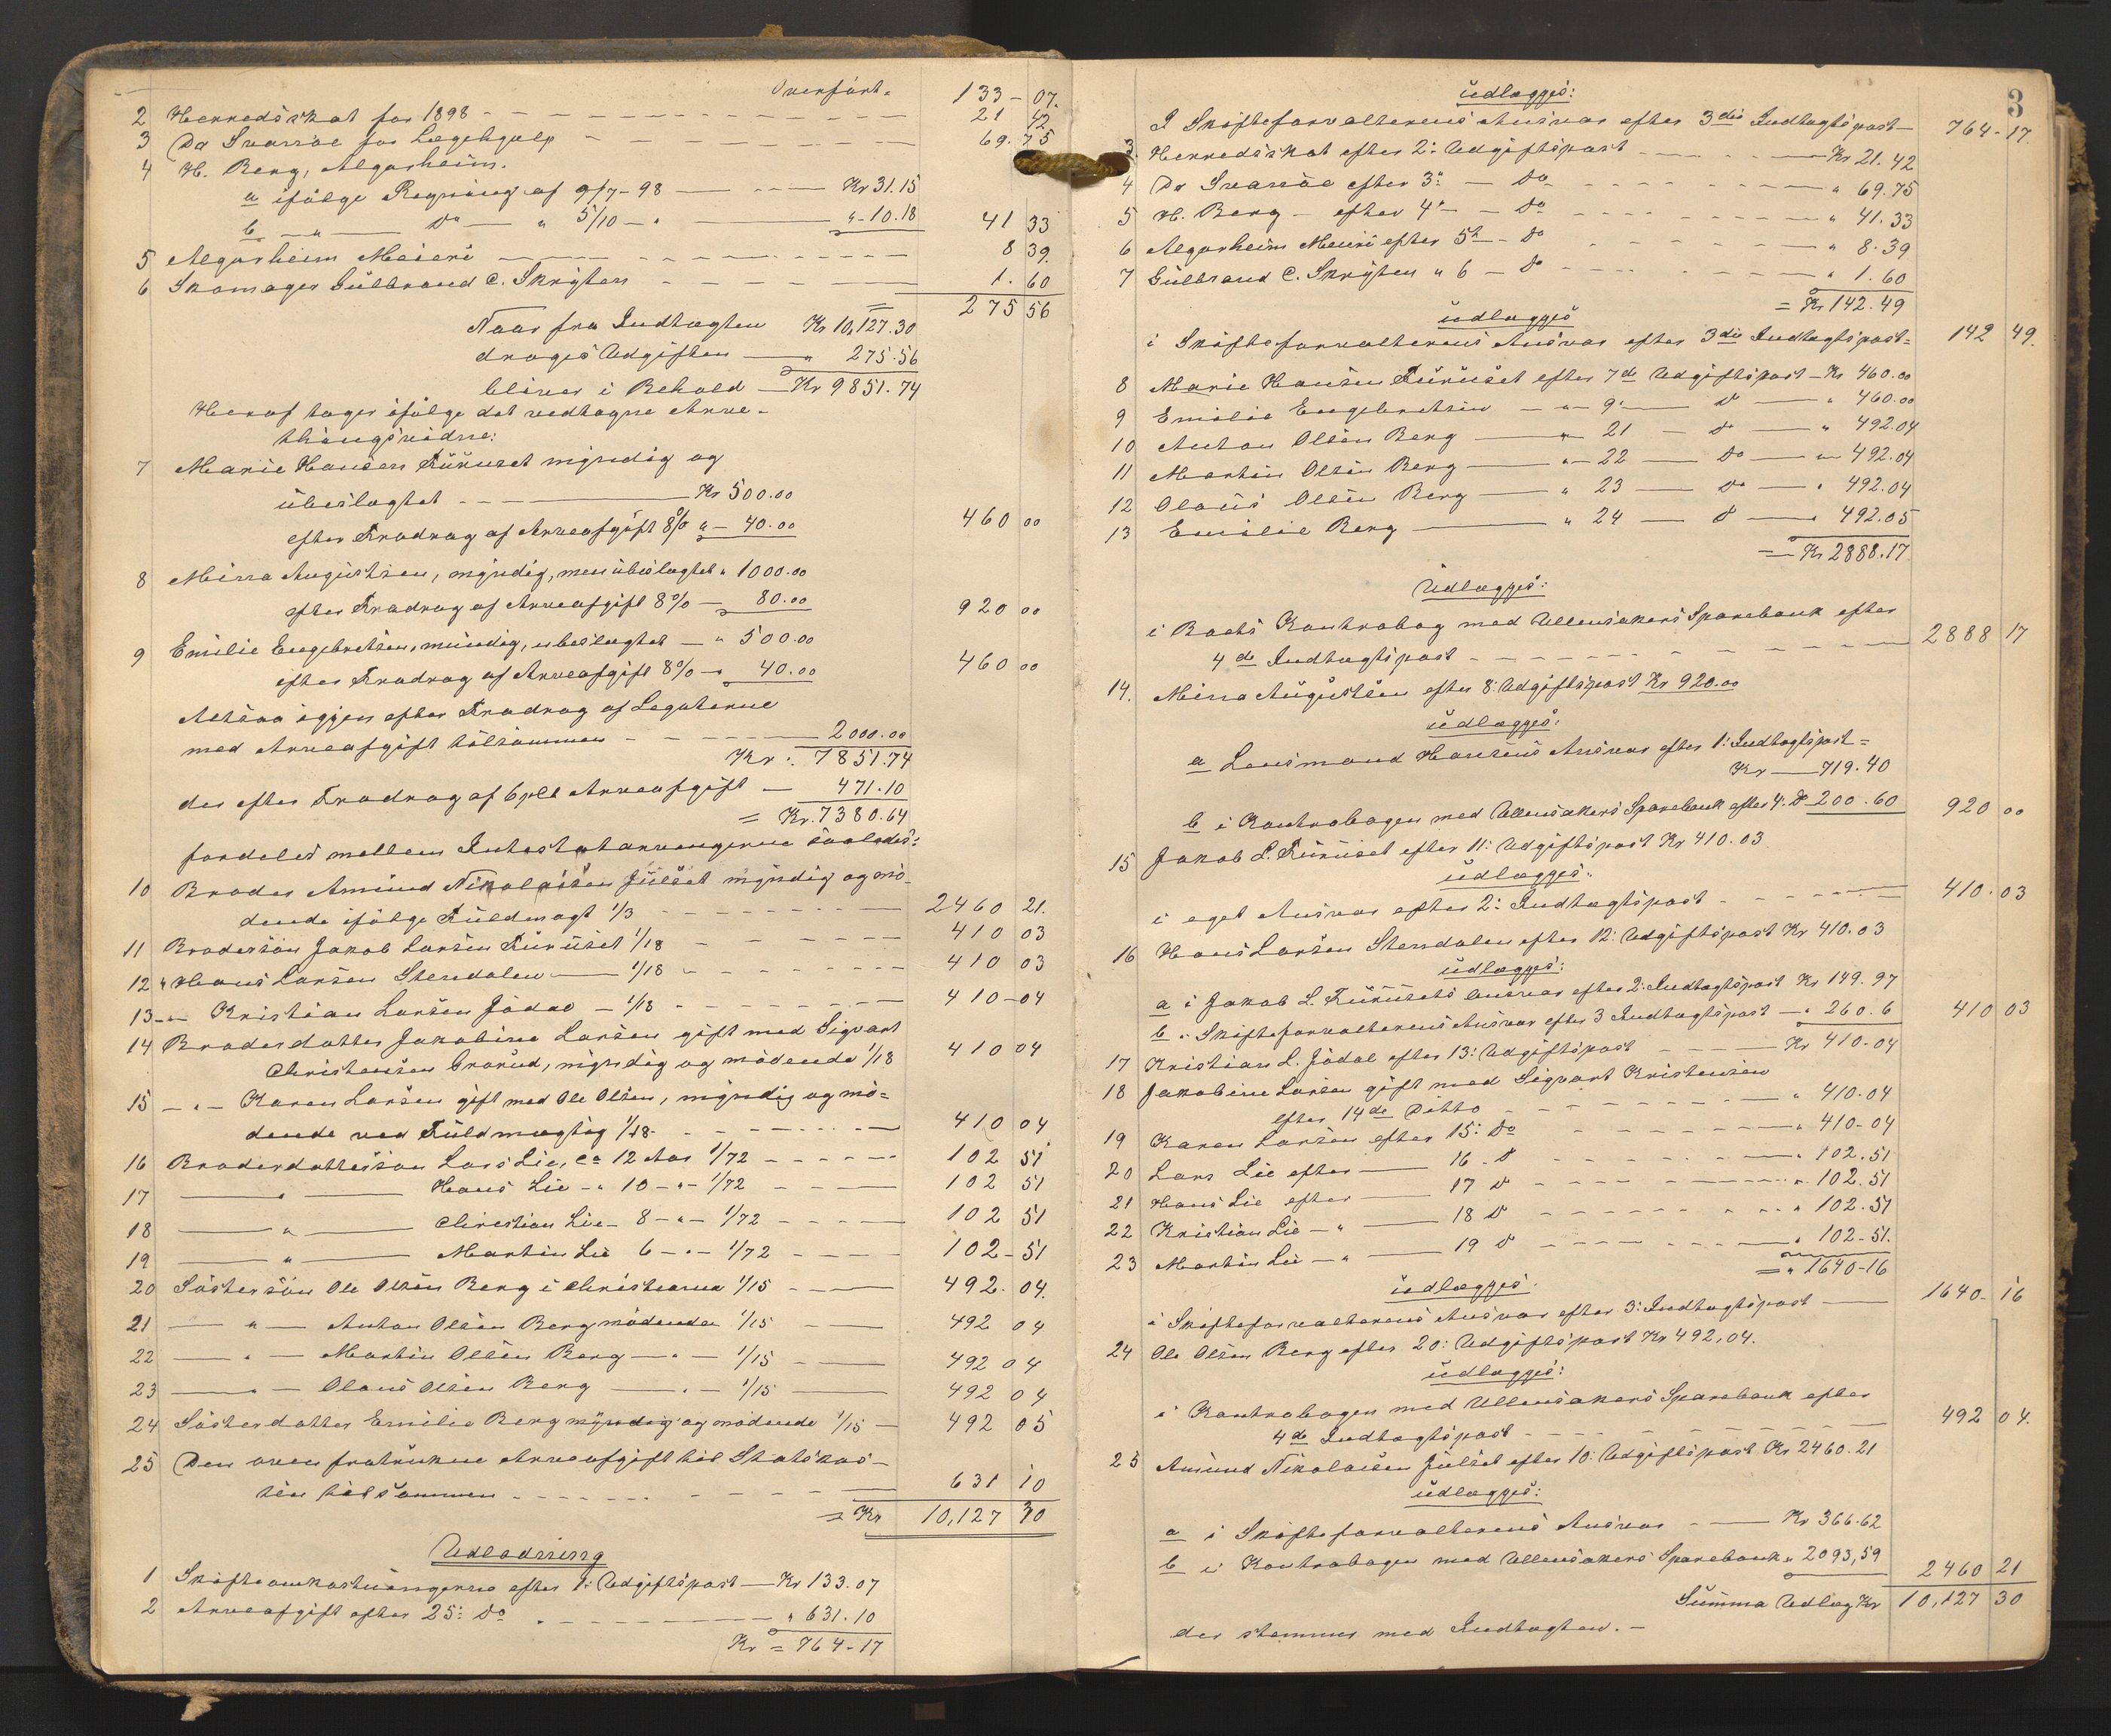 Overført = 133 - 07.
2 Herredsskat for 1898 - - - 21 42
3 Dr Svarrøe for Lægehjælp - - - 69.75
4 H. Berg, Algarheim.
a ifølge Regning af 9/7 - 98 — Kr 31.15
b — " — Do — " 5/10 - " — " - 10.18 41 33
5 Algarheim Meieri — 8 39.
6 Skomager Gulbrand C. Skrysten - - - 1. 60
275 56
Naar fra Indtægten Kr 10,127.30
drages Udgiften — " 275.56
bliver i Behold — Kr 9851.74
Heraf tages ifølge det vedtagne Arve-
thingsvidne:
7 Marie Hansen Furuset myndig og
ubeslægtet - - — Kr 500.00
efter Fradrag af Arveafgift 8% " - 40.00 460 00
8 Mina Augustsen, myndig, men ubeslægtet " 1000.00
efter Fradrag af Arveafgift 8% — 80.00 920 00
9 Emilie Engebretsen, mündig, ubeslægtet — " 500.00
efter Fradrag af Arveafgift 8% — 40.00 460 00
Altsaa igjen efter Fradrag af Legaterne
med Arveafgift tilsammen - - — 2000.00
Kr. 7851.74
der efter Fradrag af 6 pct Arveafgift — 471.10
= Kr. 7380.64
fordeles mellem Intestatarvingerne saaledes:
10 Broder Amund Nikolaisen Julset myndig og mö-
dende ifølge Fuldmagt 1/3 - - - 2460 21.
11 Brodersön Jakob Larsen Furuset 1/18 - - - 410 03
12 " Hans Larsen Stendalen — 1/18 - - - 410 03
13 - " - Kristian Larsen Jödal — 1/18 - - - 410 - 04
14 Broderdatter Jakobine Larsen gift med Sigvart
Christensen Grorud, myndig og mødende 1/18 410 04
15 - " - Karen Larsen gift med Ole Olsen, myndig og mö-
dende ved Fuldmægtig 1/18 - - - 410 04
16 Broderdattersön Lars Lie, ca 12 Aar 1/72 - - - 102 51
17 — " — Hans Lie - " 10 - " - 1/72 - - - 102 51
18 — " — Christian Lie - 8 - " - 1/72 - - - 102 51
19 — " — Martin Lie 6 - " - 1/72 - - - 102 - 51
20 Søstersön Ole Olsen Berg i Christiania 1/15 - - - 492. 04.
21 — " — Anton Olsen Berg mödende 1/15 - - - 492 04
22 — " — Martin Olsen Berg — " — 1/15 - - - 492 04
23 — " — Olaus Olsen Berg — " — 1/15 — 492 04
24 Søsterdatter Emilie Berg myndig og mødende 1/15 — 492 05
25 Den oven fratrukne Arveafgift til Statskas-
sen tilsammen - - - 631 10
= Kr 10,127 30
Udlodning
1 Skifteomkostningerne efter 1: Udgiftspost — Kr 133.07
2 Arveafgift efter 25: Do - - - " 631.10
Kr = 764 - 17
3
Udlægges:
I Skifteforvalterens Ansvar efter 3die Indtægtspost — 764 - 17.
3. Herredsskat efter 2: Udgiftspost - - — Kr 21.42
4 Dr Svarrøe efter 3: — Do - - - " 69.75
5 H. Berg - efter 4: — Do - - - " 41.33
6 Algarheim Meieri efter 5te - Do - - - " 8.39
7 Gulbrand C. Skrysten " 6 - Do - - - " 1.60
= Kr 142.49
udlægges
i Skifteforvalterens Ansvar efter 3die Indtægtspost = 142 49.
8 Marie Hansen Furuset efter 7de Udgiftspost - Kr 460.00
9 Emilie Engebretsen — " - 9: — Do — " 460.00
10 Anton Olsen Berg — " — 21 — Do — " 492.04
11 Martin Olsen Berg — " - 22 — Do — " 492.04
12 Olaus Olsen Berg — " 23 — Do — " 492.04
13 Emilie Berg — " 24 — Do — 492.05
= Kr 2888.17
Udlægges:
i Boets Kontrabog med Ullensakers Sparebank efter
4de Indtægtspost - - - 2888 17
14. Mina Augustsen efter 8: Udgiftspost Kr 920.00
udlægges:
a Lensmand Hansens Ansvar efter 1: Indtægtspost =
Kr — 719.40
b i Kontrabogen med Ullensakers Sparebank efter 4: Do 200.60 920 00
15 Jakob L. Furuset efter 11: Udgiftspost Kr 410.03
udlægges:
i eget Ansvar efter 2: Indtægtspost - - - 410.03
16 Hans Larsen Stendalen efter 12: Udgiftspost Kr 410.03
udlægges:
a i Jakob L. Furusets Ansvar efter 2: Indtægtspost Kr 149.97
b " Skifteforvalterens Ansvar efter 3 Indtægtspost — " 260.6 410 03
17 Kristian L. Jödal efter 13: Udgiftspost — Kr 410.04
18 Jakobine Larsen gift med Sigvart Kristensen
efter 14de Ditto - - - " 410.04
19 Karen Larsen efter 15: Do - - - " 410-04
20 Lars Lie efter — 16 - Do - - - " 102.51
21 Hans Lie efter — 17 Do - - - " 102.51
22 Kristian Lie — " — 18 Do - - - " 102.51
23 Martin Lie — " — 19 Do - - - " 102-51.
= " 1640-16
udlægges:
i Skifteforvalterens Ansvar efter 3: Indtægtspost — 1640 - 16
24 Ole Olsen Berg efter 20: Udgiftspost Kr 492,04.
udlægges:
i Kontrabogen med Ullensakers Sparebank efter
4de Indtægtspost - - - 492 04.
25 Amund Nikolaisen Julset efter 10: Udgiftspost Kr 2460.21
udlægges:
a i Skifteforvalterens Ansvar - - — Kr 366.62
b i Kontrabogen med Ullensakers Sparebank " 2093,59 2460 21
Summa Udlæg Kr 10,127 30
der stemmer med Indtægten. -